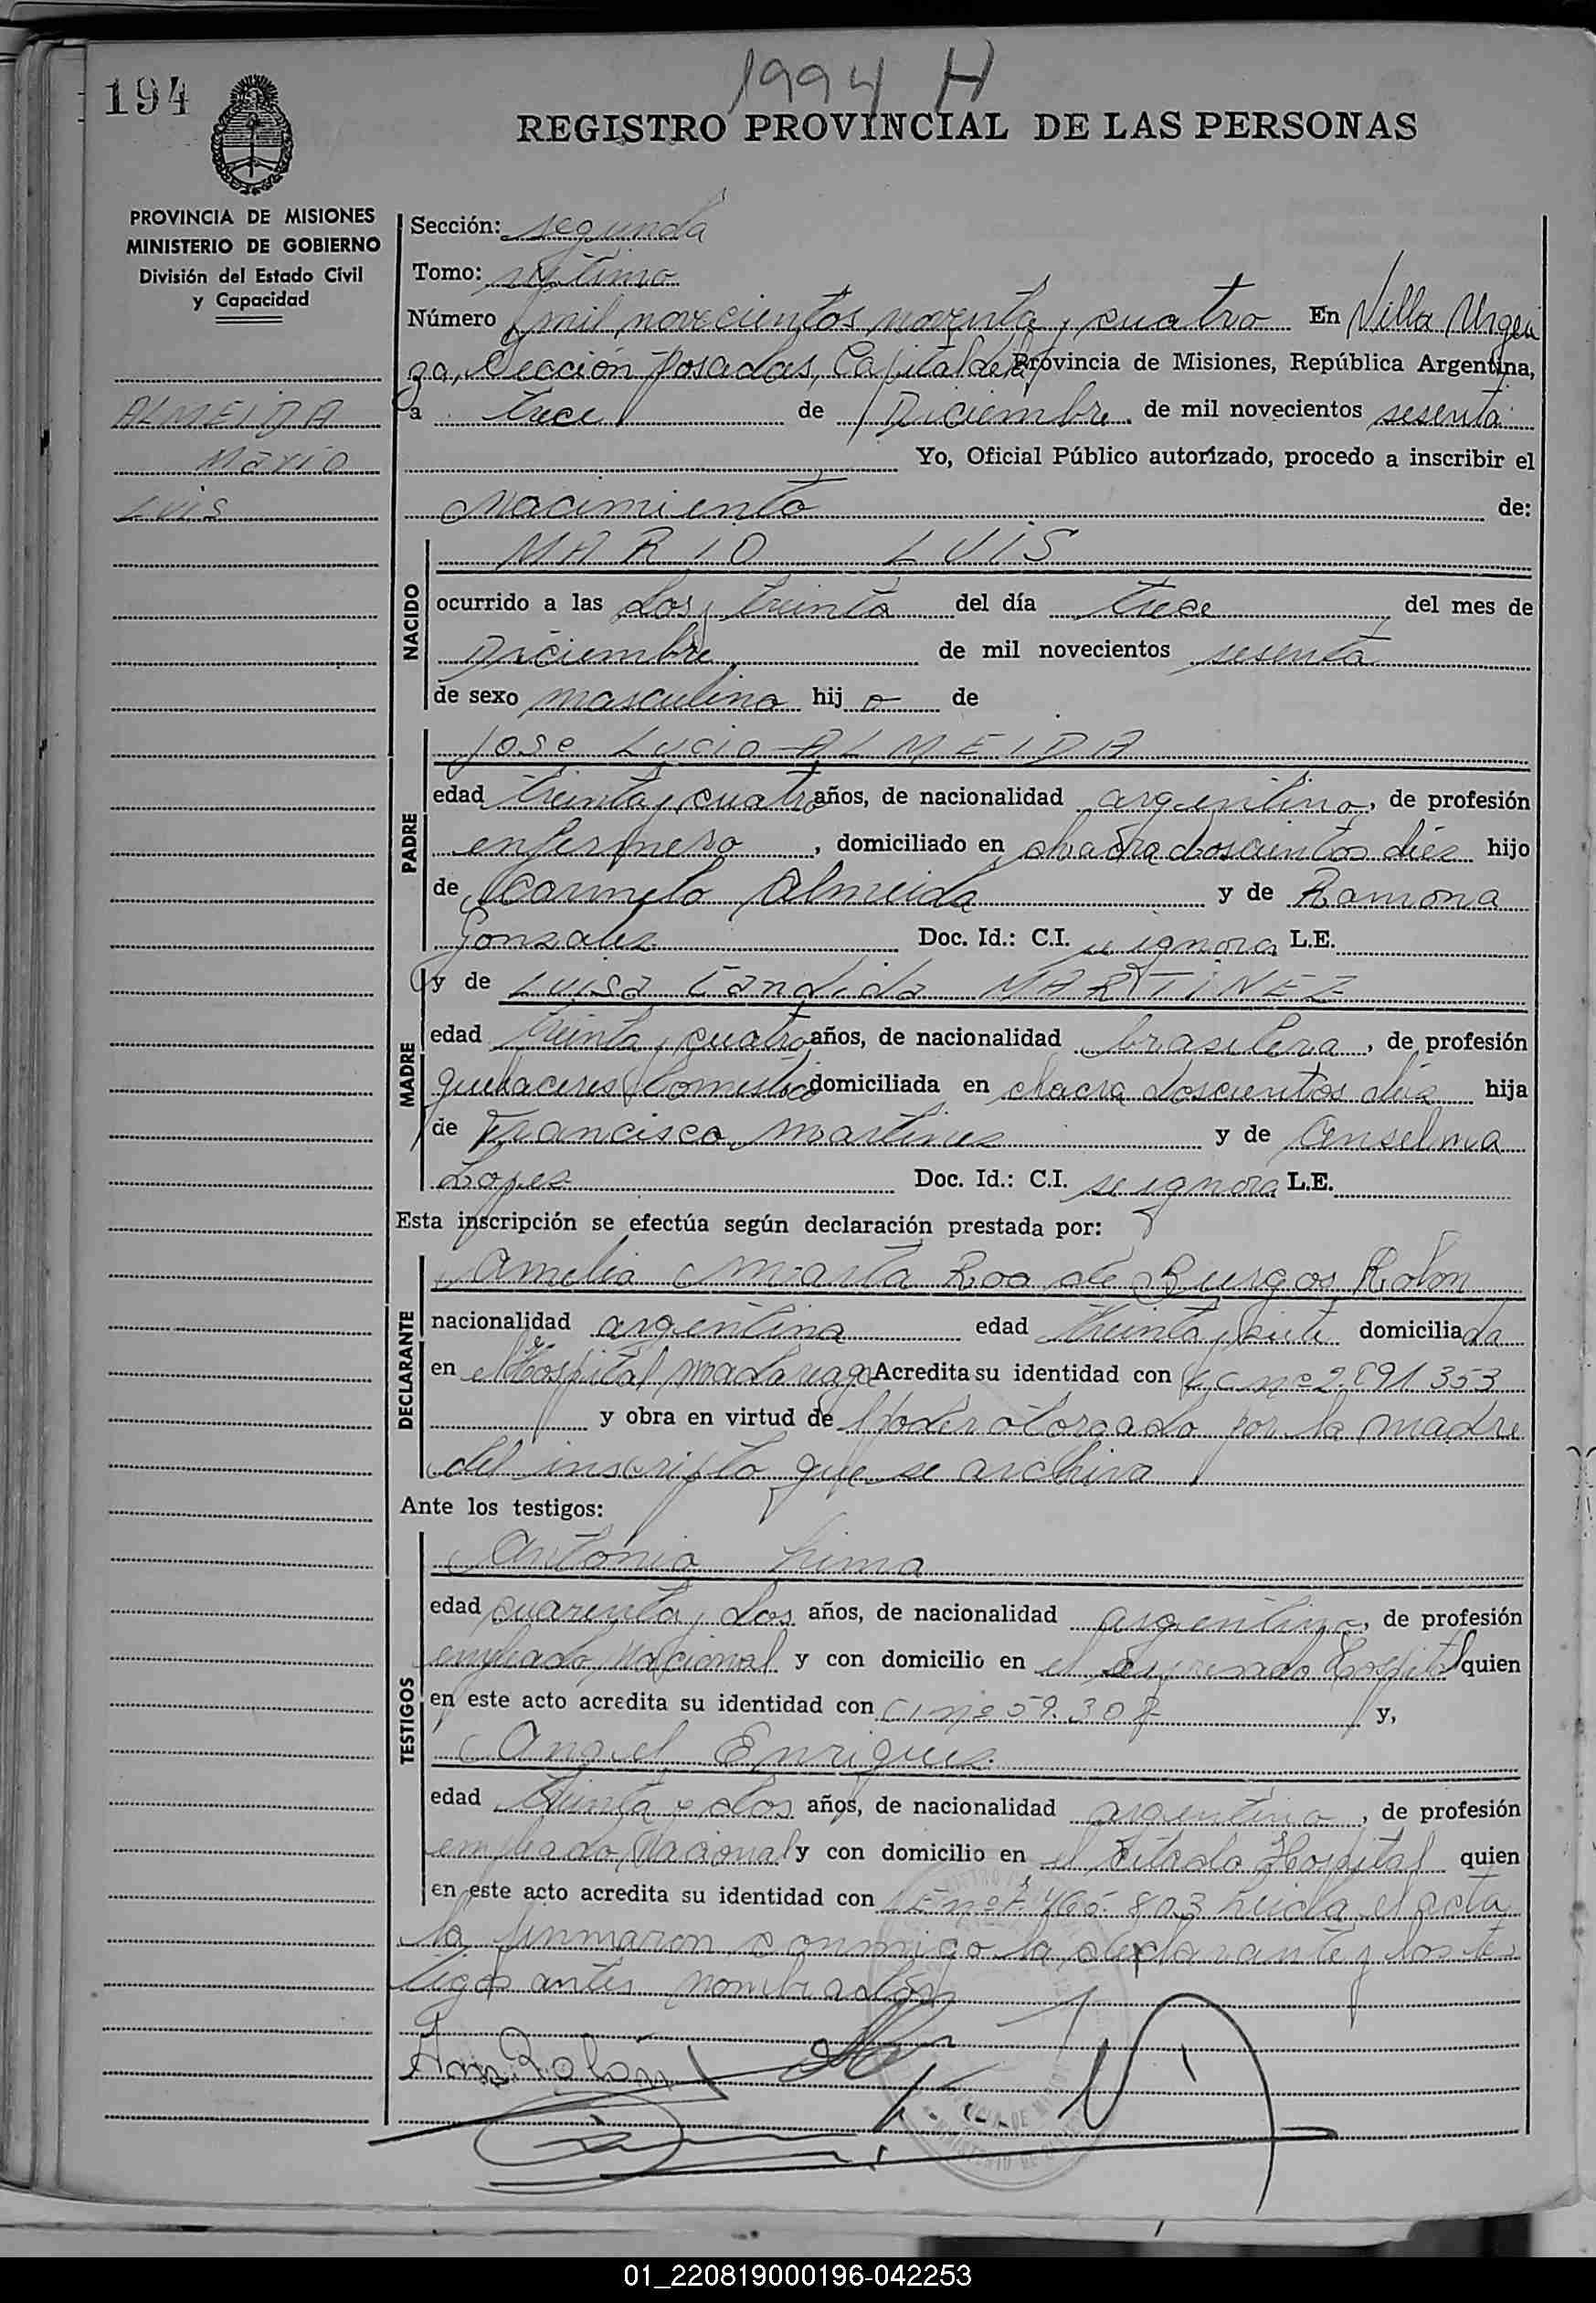 1994 H
194
REGISTRO PROVINCIAL DE LAS PERSONAS
PROVINCIA DE MISIONES
MINISTERIO DE GOBIERNO
División del Estado Civil
y Capacidad
ALMEIDA
Mario
Luis
Sección: segunda
Tomo: séptimo
Número mil novecientos noventa y cuatro En Villa Urqui
za, Sección Posadas, Capital de la Provincia de Misiones, República Argentina,
a trece de Diciembre de mil novecientos sesenta
Yo, Oficial Público autorizado, procedo a inscribir el
Nacimiento de:
NACIDO
MARIO LUIS
ocurrido a las dos y treinta del día trece del mes de
Diciembre de mil novecientos sesenta
de sexo masculino hij o de
PADRE
Jose Lucio ALMEIDA
edad treinta y cuatro años, de nacionalidad argentino, de profesión
enfermero, domiciliado en chacra doscientos diez hijo
de Carmelo Almeida y de Ramona
Gonzalez Doc. Id.: C.I. se ignora L.E.
MADRE
y de Luisa Candida MARTINEZ
edad treinta y cuatro años, de nacionalidad brasilera, de profesión
quehaceres domesticos domiciliada en chacra doscientos diez hija
de Francisco Martines y de Anselma
Lopes Doc. Id.: C.I. se ignora L.E.
Esta inscripción se efectúa según declaración prestada por:
DECLARANTE
Amelia Marta Roa de Burgos Rolon
nacionalidad argentina edad treinta y siete domiciliada
en el Hospital Madariaga Acredita su identidad con LC nº 2.891.353
y obra en virtud de poder otorgado por la madre
del inscripto que se archiva
Ante los testigos:
TESTIGOS
Antonio Lima
edad cuarenta y dos años, de nacionalidad argentino, de profesión
empleado Nacional y con domicilio en el expresado Hospital quien
en este acto acredita su identidad con CI nº 59.308 y,
Angel Enriques
edad treinta y dos años, de nacionalidad argentino, de profesión
empleado Nacional y con domicilio en el citado Hospital quien
en este acto acredita su identidad con LE nº 7.465.803 Leida el acta
la firmaron conmigo la declarante y los tes
tigos antes nombrados
Rolon
01_220819000196-042253